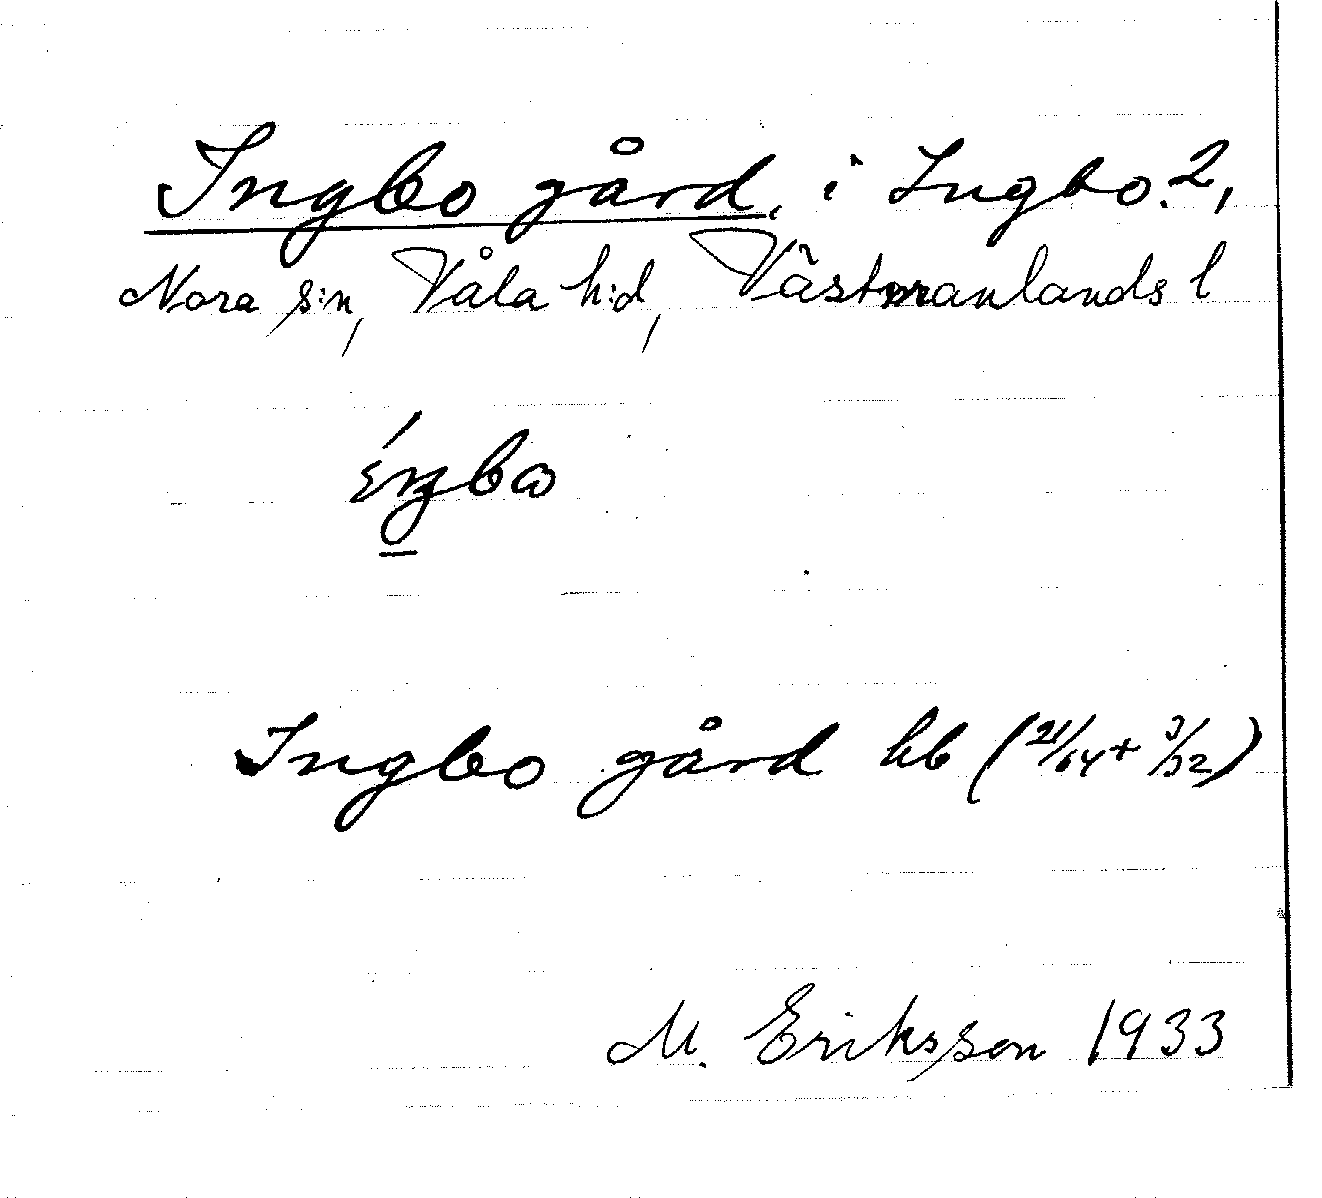 Ingbo gård, i Ingbo.2,
Nora s:n, Våla h:d, Västmanlands l
Ingbo gård hb (21/64 + 3/32)
M. Eriksson 1933